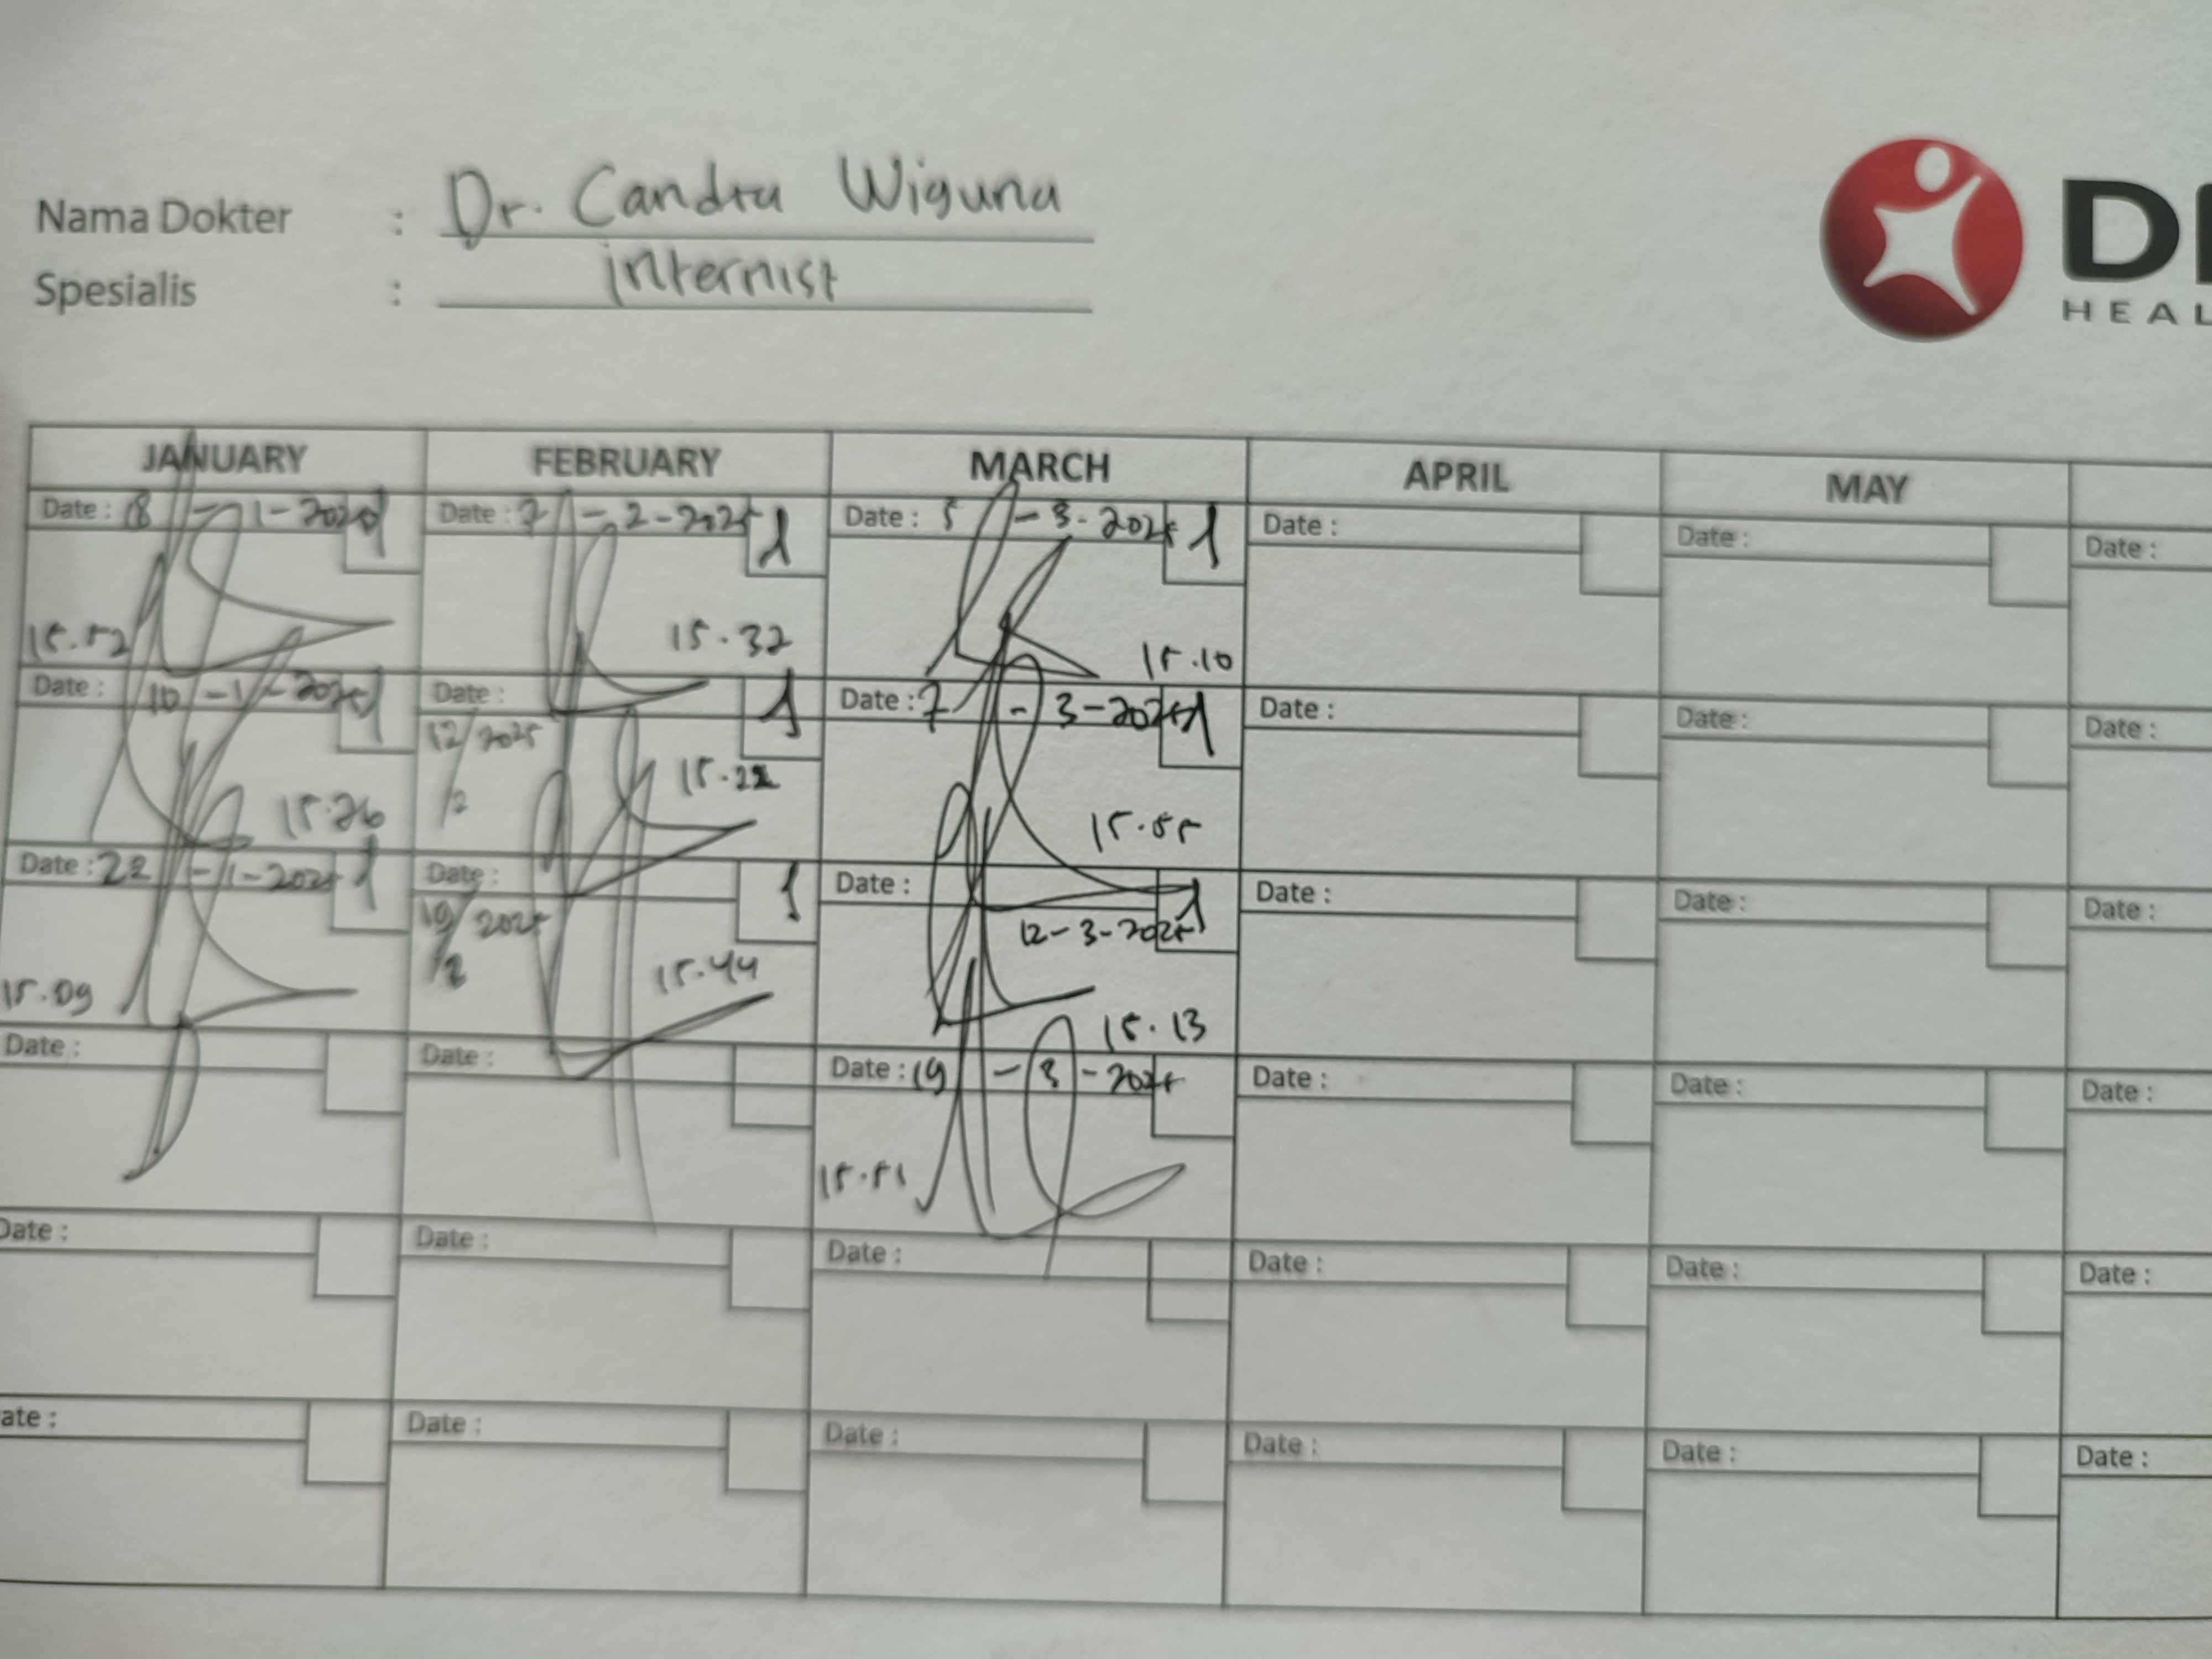 Nama Dokter : Dr. Candra Wiguna
Spesialis : internist
HEAL
JANUARY FEBRUARY MARCH APRIL MAY
Date : 8 -1-2025 1 Date : 7 -2-2025 1 Date : 5 -3-2025 1 Date : Date : Date :
15.52 15.32 15.10
Date : 10 -1-2025 1 Date : 1 Date : 7 -3-2025 1 Date : Date : Date :
12/2025
/2
15.26 15.22 15.55
Date : 22 -1-2025 1 Date : 1 Date : 1 Date : Date : Date :
19/2025 12-3-2025
/2
15.09 15.44 15.13
Date : Date : Date : 19 -3-2025 Date : Date : Date :
15.51
Date : Date : Date : Date : Date : Date :
ate : Date : Date : Date : Date : Date :